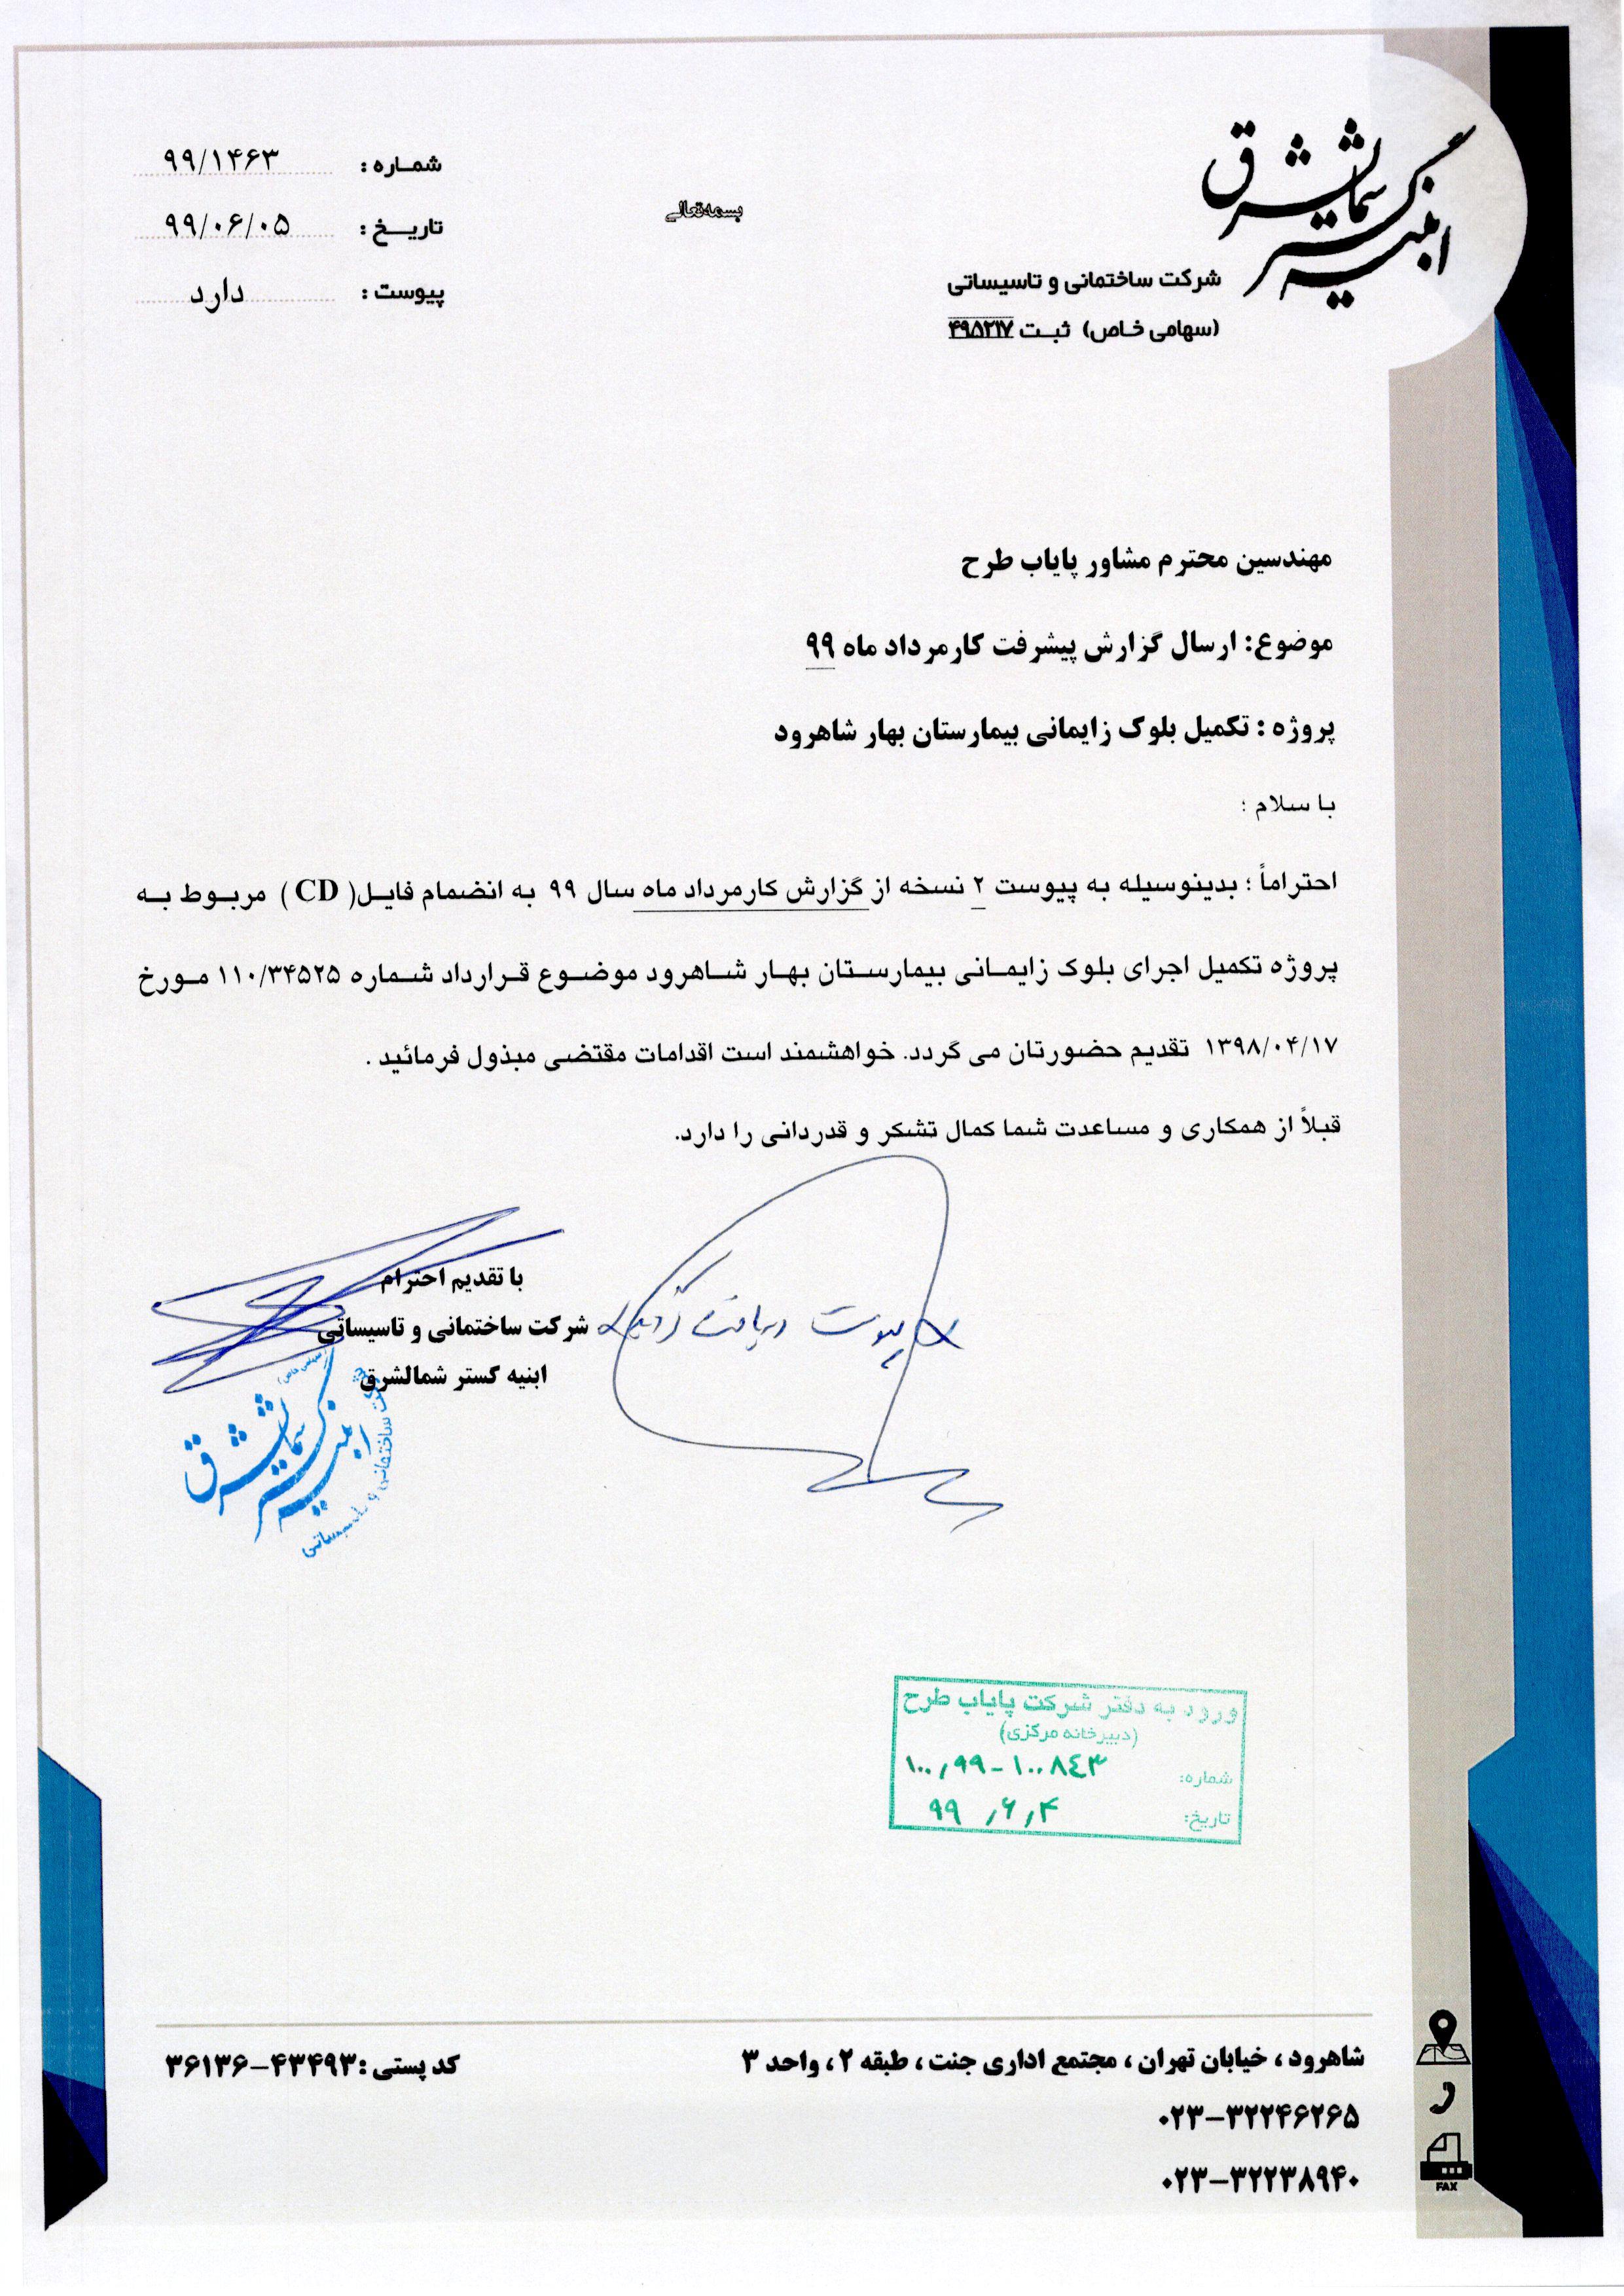 ابنیه گستر شمالشرق
شرکت ساختمانی و تاسیساتی
(سهامی خاص) ثبت ۴۹۵۲۱۷
بسمه‌تعالی
شماره : ۹۹/۱۴۶۳
تاریخ : ۹۹/۰۶/۰۵
پیوست : دارد
مهندسین محترم مشاور پایاب طرح
موضوع: ارسال گزارش پیشرفت کارمرداد ماه ۹۹
پروژه : تکمیل بلوک زایمانی بیمارستان بهار شاهرود
با سلام ؛
احتراماً ؛ بدینوسیله به پیوست ۲ نسخه از گزارش کارمرداد ماه سال ۹۹ به انضمام فایل( CD ) مربوط به
پروژه تکمیل اجرای بلوک زایمانی بیمارستان بهار شاهرود موضوع قرارداد شماره ۱۱۰/۳۴۵۲۵ مورخ
۱۳۹۸/۰۴/۱۷ تقدیم حضورتان می گردد. خواهشمند است اقدامات مقتضی مبذول فرمائید .
قبلاً از همکاری و مساعدت شما کمال تشکر و قدردانی را دارد.
با تقدیم احترام
شرکت ساختمانی و تاسیساتی
ابنیه گستر شمالشرق
پیوست دریافت گردید
ابنیه گستر شمالشرق
شرکت ساختمانی و تاسیساتی
(سهامی خاص)
ورود به دفتر شرکت پایاب طرح
(دبیرخانه مرکزی)
شماره: ۱۰۰٫۹۹-۱۰۰۸٤۳
تاریخ: ۹۹٫۶٫۴
شاهرود ، خیابان تهران ، مجتمع اداری جنت ، طبقه ۲ ، واحد ۳
کد پستی : ۴۳۴۹۳-۳۶۱۳۶
۰۲۳-۳۲۲۴۶۲۶۵
۰۲۳-۳۲۲۳۸۹۴۰
FAX